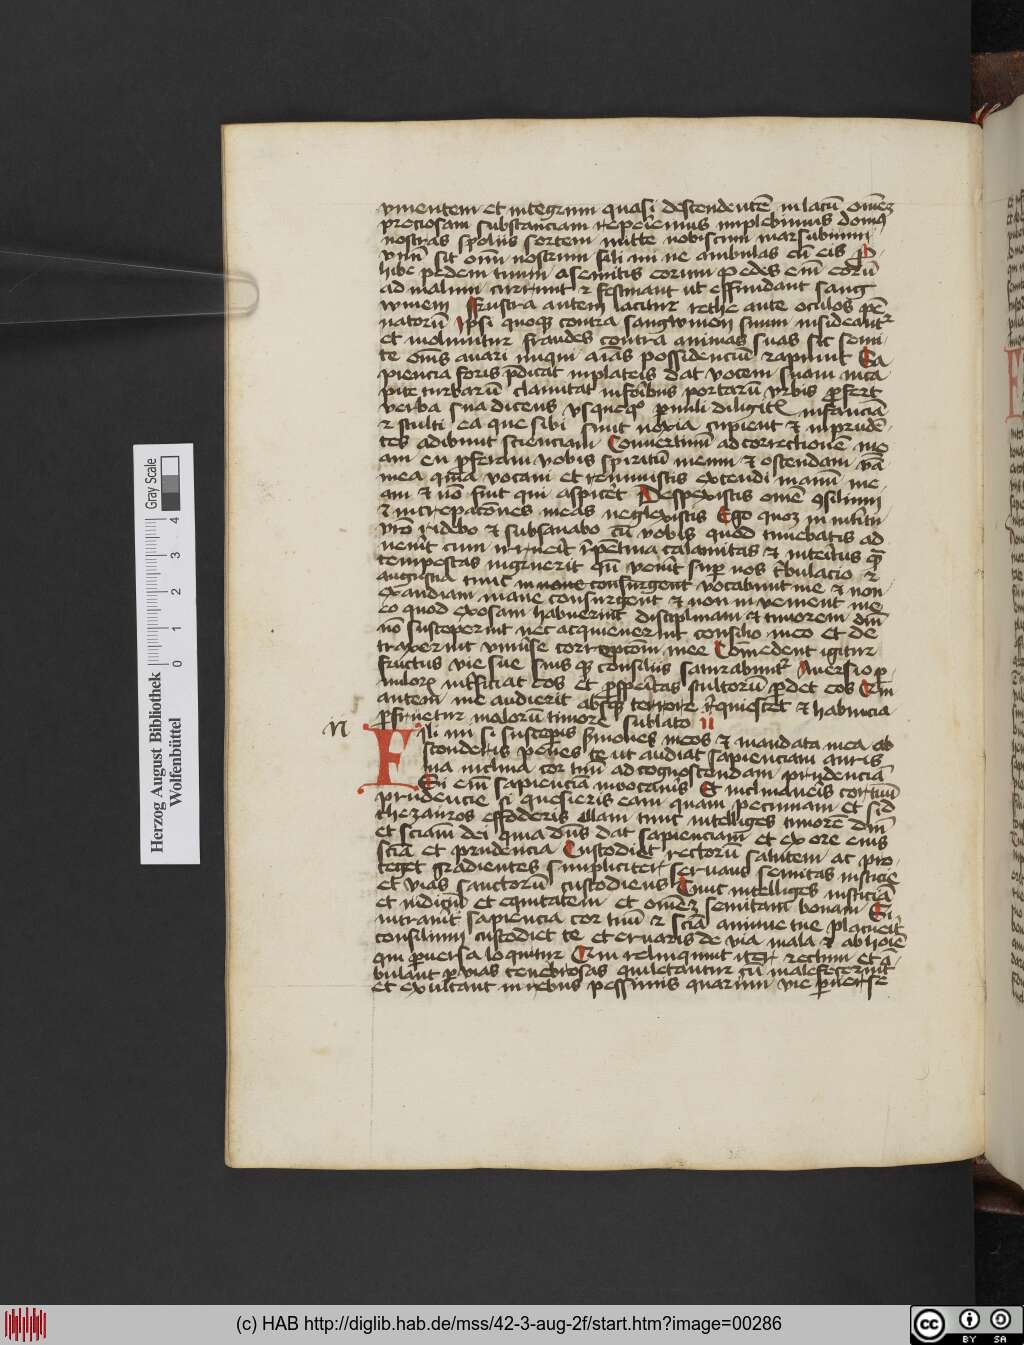 viventem et integrum quasi descendentē in lacū omēȝ
preciosam substanciam reperiemus implebimus domꝰ
nostras spoliis sortem mitte nobiscum marsubium
vnū sit om̄ nostrum fili mi ne ambulas cū eis P
hibe pedem tuum a semitis eorum pedes em̄ eorū
ad malum currunt ⁊ festinant ut effundant sang
winem Frustra autem iacitur rethe ante oculos pē
natorū Ipsi quoqꝫ contra sangwinem suum insideantᷣ
et moliuntur fraudes contra animas suas sic semi
te om̄s avari animas possidenciū rapiunt Sa
piencia foris p̄dicat in plateis dat vocem suam in ca
pite turbarū clamitat in foribus portarū vrbis profert
verba sua dicens vsquequo parvuli diligitis infanciā
⁊ stulti ea que sibi sunt noxia cupient ⁊ inprudē
tes odibunt scienciam Convertimini ad correctionē me
am en proferam vobis spiritū meum ⁊ ostendam v̄ba
mea quia vocavi et rennuistis extendi manū me
am ⁊ nō fuit qui aspiceret Despexistis om̄e consilium
⁊ increpationes meas neglexistis Ego quoqꝫ in interitu
vrō ridebo ⁊ subsanabo cū vobis quod timebatis ad
venerit cum irruerit repentina calamitas ⁊ interitus quasi
tempestas ingruerit qn̄ venerit super vos tribulacio ⁊
angustia tunc invocabunt me ⁊ non
exaudiam mane consurgent ⁊ non invenient me
eo quod exosam habuerint disciplinam ⁊ timorem dn̄i
nō susceperint nec acquieuerint consilio meo et de
traxerint vniuerse correptioni mee Comedent igitur
fructus vie sue suisqꝫ consiliis saturabuntur Aversio p
vulorum interficiet eos et prosperitas stultorū perdet eos Qui
autem me audierit absqꝫ terrore requiescet ⁊ habundacia
perfruetur malorū timore sublato II
Fili mi si susceperis sermones meos ⁊ mandata mea ab
sconderis penes te ut audiat sapienciam auris
tua inclina cor tuū ad cognoscendam prudenciā
Si em̄ sapienciā invocaueris Et inclinaueris cor tuū
prudencie si quesieris eam quasi pecuniam et sic
thezauros effoderis illam tunc intelliges timorē dn̄i
et sciam̄ dei quia dn̄s dat sapienciam et ex ore eius
sciā et prudencia Custodiet rectorū salutem ac pro
teget gradientes simpliciter servans semitas iusticie
et vias sanctorū custodiens Tunc intelliges iusticiā
et iudiciū et equitatem et omēȝ semitam bonam Si
intraverit sapiencia cor tuū ⁊ sciā anime tue placuerit
consilium custodiet te et eruaris de via mala ⁊ ab hoīe
qui perversa loquitur Qui relinquunt iter rectum et ā
bulant per vias tenebrosas qui letantur cū malefecerint
et exultant in rebus pessimis quarum vie perverse
Herzog August Bibliothek
Wolfenbüttel
0 1 2 3 4
Gray Scale
(c) HAB http://diglib.hab.de/mss/42-3-aug-2f/start.htm?image=00286
cc BY SA